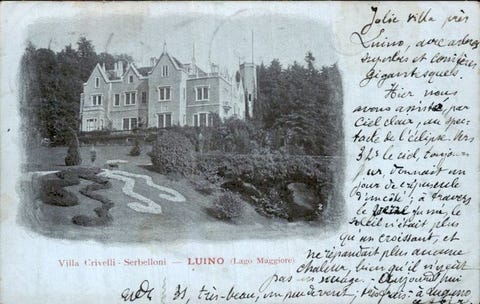 Jolie villa près
Luino, avec arbres
superbes et conifères
gigantesques.
Hier nous
avons assisté, par
ciel clair, au spec-
tacle de l'éclipse. Vers
le ciel, toujours
pur, donnait un
jour de crépuscule
d'un côté; à travers
le verre fumé, le
soleil n'était plus
qu'un croissant, et
ne répandait plus aucune
chaleur, bien qu'il n'y eût
pas un nuage. Aujourd'hui
31, très-beau, un peu de vent,
Villa Crivelli - Serbelloni — LUINO (Lago Maggiore)